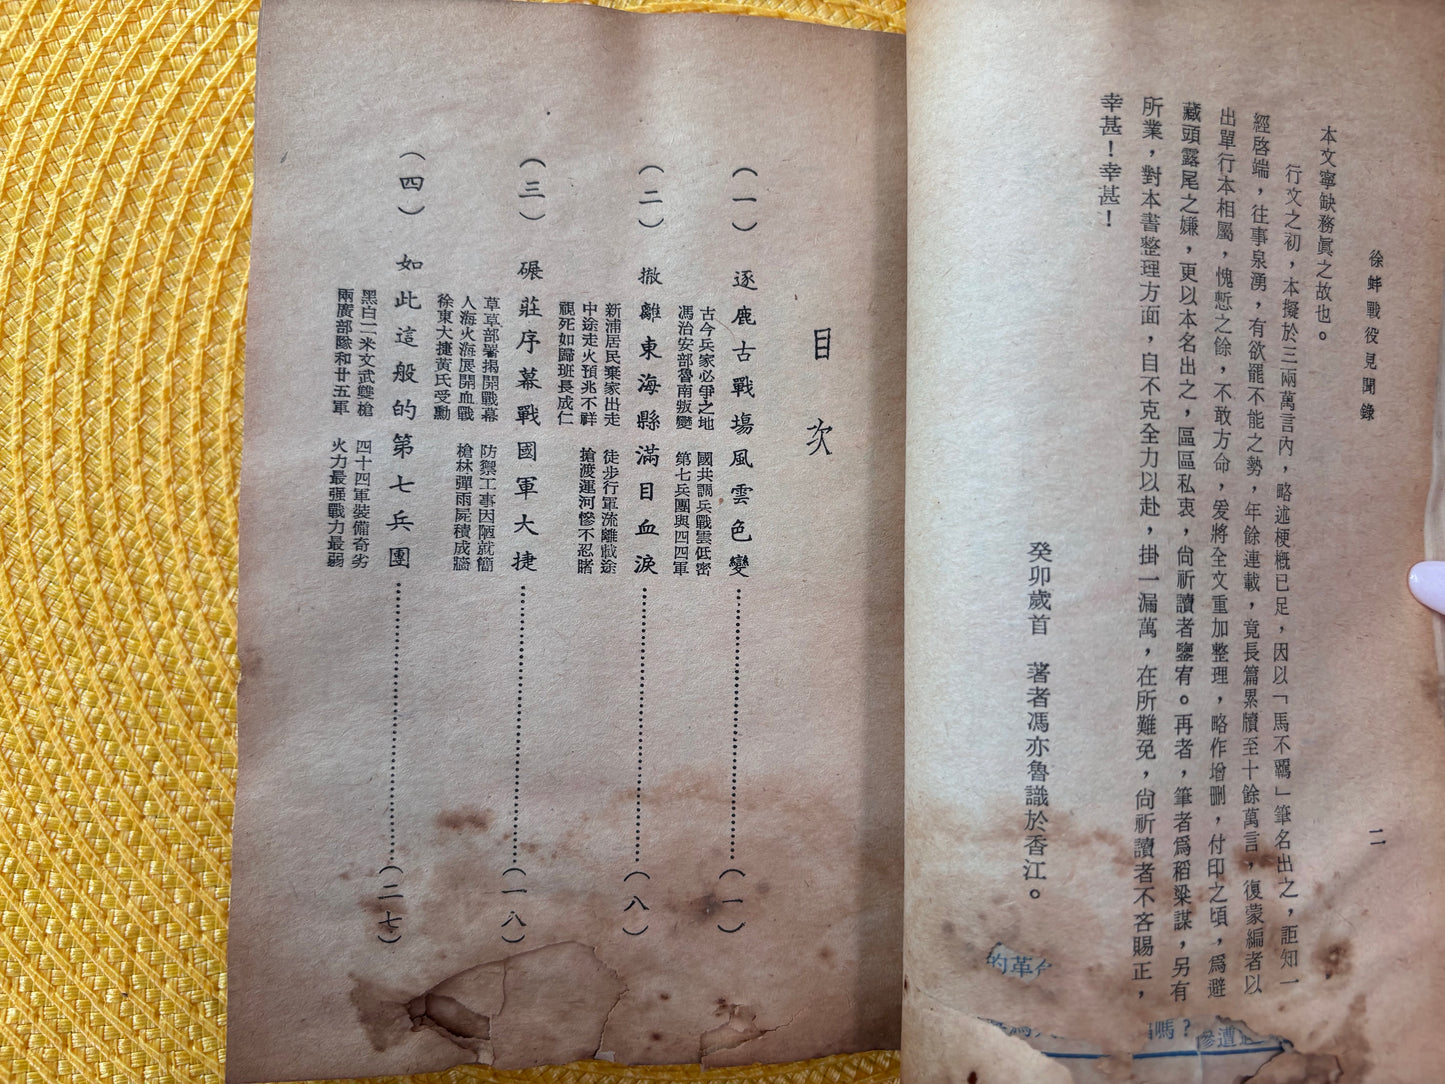 徐蚌戰役見聞錄
二
本文寧缺務眞之故也。
行文之初，本擬於三兩萬言內，略述梗概已足，因以「馬不羈」筆名出之，詎知一
經啓端，往事泉湧，有欲罷不能之勢，年餘連載，竟長篇累牘至十餘萬言，復蒙編者以
出單行本相屬，愧慙之餘，不敢方命，爰將全文重加整理，略作增删，付印之頃，爲避
藏頭露尾之嫌，更以本名出之，區區私衷，尙祈讀者鑒宥。再者，筆者爲稻粱謀，另有
所業，對本書整理方面，自不克全力以赴，掛一漏萬，在所難免，尙祈讀者不吝賜正，
幸甚！幸甚！
癸卯歲首　著者馮亦魯識於香江。
的革命
嗎？
慘遭
目次
（一）逐鹿古戰塲風雲色變……（一）
古今兵家必爭之地　國共調兵戰雲低密
馮治安部魯南叛變　第七兵團與四四軍
（二）撤離東海縣滿目血淚……（八）
新浦居民棄家出走　徒步行軍流離載途
中途走火預兆不祥　搶渡運河慘不忍睹
視死如歸班長成仁
（三）碾莊序幕戰國軍大捷……（一八）
草草部署揭開戰幕　防禦工事因陋就簡
人海火海展開血戰　槍林彈雨屍積成牆
徐東大捷黃氏受勳
（四）如此這般的第七兵團……（二七）
黑白二米文武雙槍　四十四軍裝備奇劣
兩廣部隊和廿五軍　火力最强戰力最弱